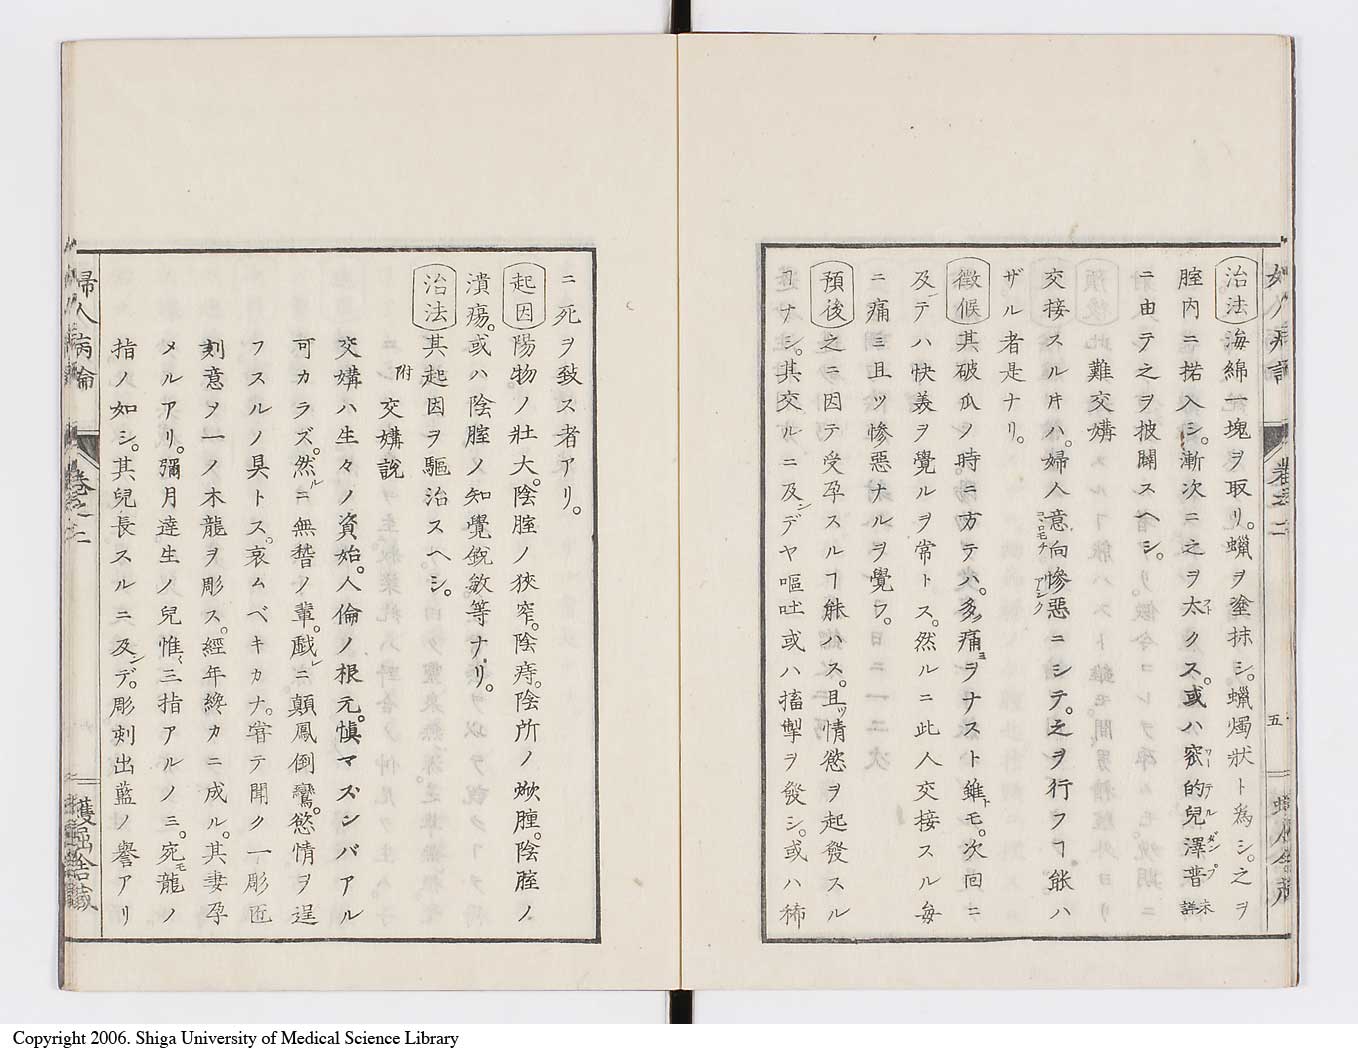 治法海綿一塊ヲ取リ。蠟ヲ塗抹シ。蠟燭狀ト爲シ。之ヲ
腟内ニ揷入シ。漸次ニ之ヲ太クス。或ハ窊的兒澤普未詳
ニ由テ之ヲ披開スヘシ。
難交媾
交接スルヿハ。婦人意向慘惡ニシテ。之ヲ行フヿ能ハ
ザル者是ナリ。
徵候其破瓜ノ時ニ方テハ。多痛ヲナスト雖モ。次回ニ
及テハ快美ヲ覺ルヲ常トス。然ルニ此人交接スル每
ニ痛ミ且ツ慘惡ナルヲ覺フ。
預後之ニ因テ受孕スルヿ能ハス。且ツ情慾ヲ起發スル
ヿナシ。其交ルニ及ンデヤ嘔吐或ハ搐掣ヲ發シ。或ハ稀
五
ニ死ヲ致ス者アリ。
起因陽物ノ壯大。陰腟ノ狹窄。陰痔。陰所ノ焮腫。陰腟ノ
潰瘍。或ハ陰腟ノ知覺銳敏等ナリ。
治法其起因ヲ驅治スヘシ。
附 交媾說
交媾ハ生々ノ資始。人倫ノ根元。愼マズンバアル
可カラズ。然ルニ無稽ノ輩。戲レニ顚鳳倒鸞。慾情ヲ逞
フスルノ具トス。哀ムベキカナ。嘗テ聞ク一彫匠
刻意ノ一ノ木龍ヲ彫ス。經年纔カニ成ル。其妻孕
メルアリ。彌月達生ノ兒惟三指アルノミ。宛モ龍ノ
指ノ如シ。其兒長スルニ及ンデ。彫刻出藍ノ譽アリ
婦人病論 卷之二
Copyright 2006. Shiga University of Medical Science Library